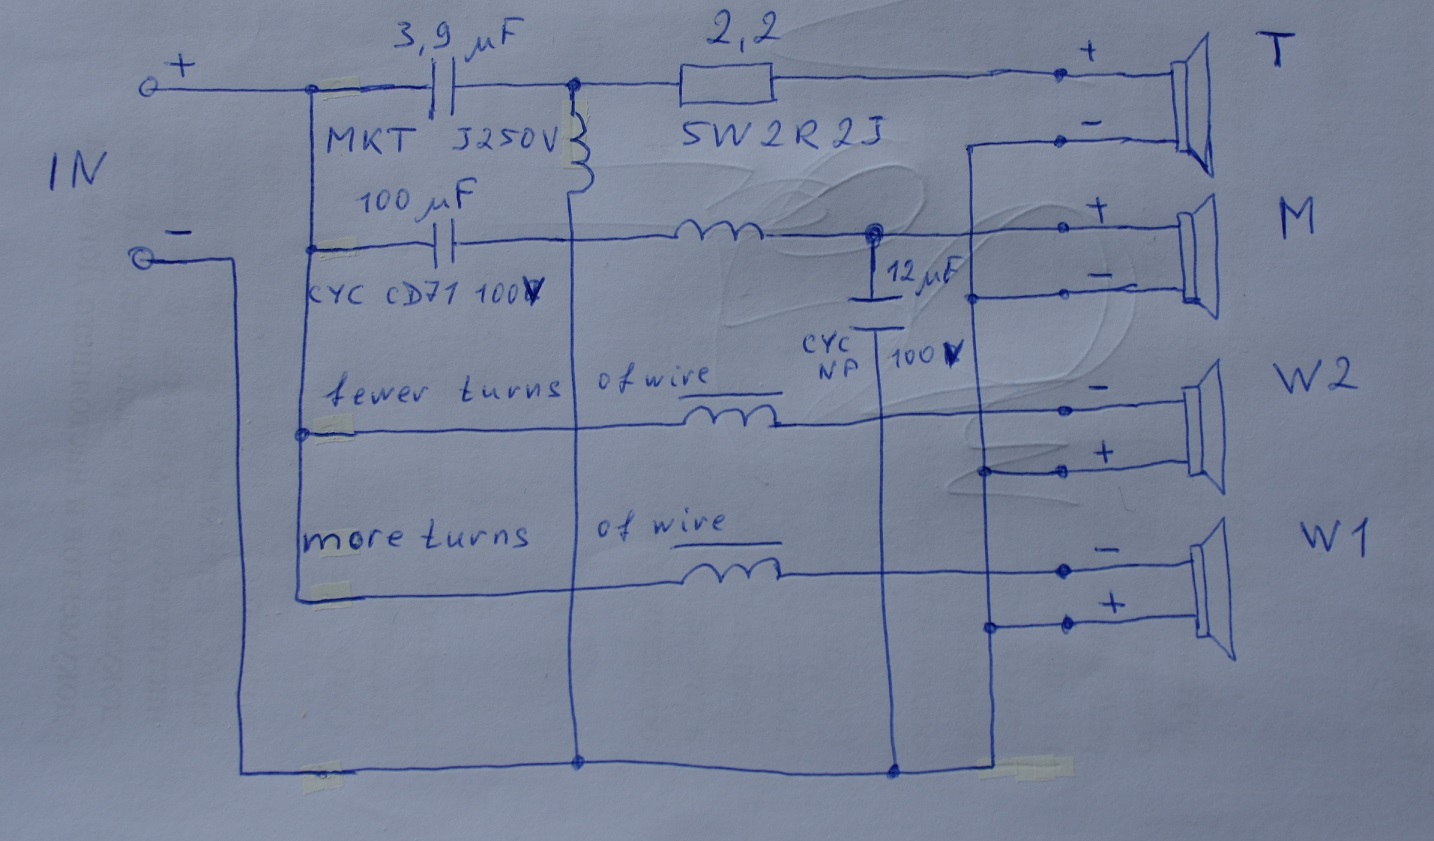 3,9 μF
2,2
+
+
T
MKT J250V
5W2R2J
-
IN
100 μF
+
M
-
-
12 μF
CYC CD71 100V
CYC
NP
100V
fewer turns of wire
-
W2
+
more turns of wire
-
W1
+